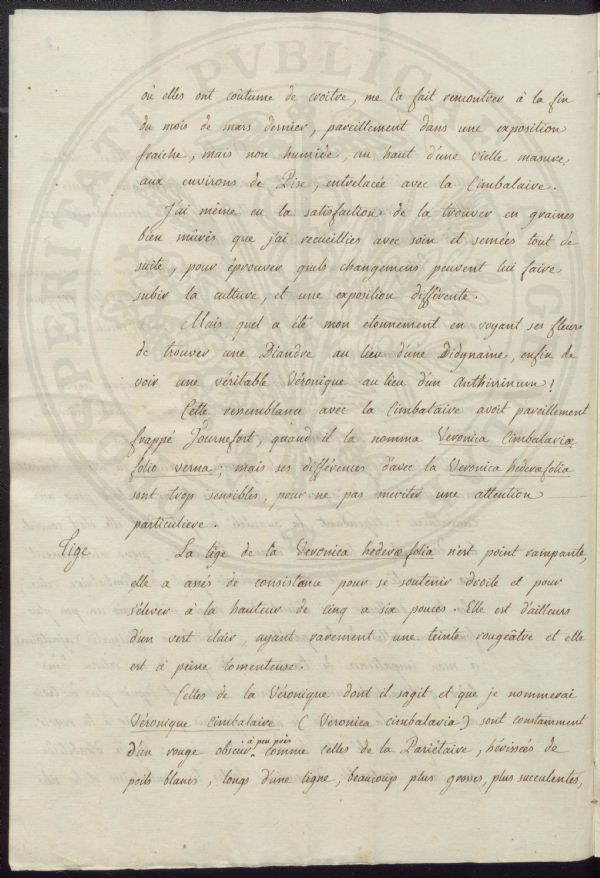 où elles ont coûtume de croitre, me l'a fait rencontrer à la fin
du mois de mars dernier, pareillement dans une exposition
fraiche, mais non humide, au haut d'une vielle masure,
aux environs de Pise, entrelacée avec la Cimbalaire.
J'ai même eu la satisfaction de la trouver en graines
bien mûres que j'ai recueillies avec soin et semées tout de
suite, pour éprouver quels changemens peuvent lui faire
subir la culture, et une exposition différente.
Mais quel a été mon etonnement en voyant ses fleurs
de trouver une Diandre au lieu d'une Didyname, enfin de
voir une véritable Véronique au lieu d'un Anthirrinum!
Cette resemblance avec la Cimbalaire avoit pareillement
frappé Tournefort, quand il la nomma Veronica Cimbalariæ
folio verna; mais ses différences d'avec la Veronica hederæfolia
sont trop sensibles, pour ne pas meriter une attention
particuliere.
Tige
La tige de la Veronica hederæ folia n'est point rampante,
elle a assés de consistance pour se soutenir droite et pour
s'élever à la hauteur de cinq a six pouces. Elle est d'ailleurs
d'un vert clair, ayant rarement une teinte rougeâtre et elle
est à peine tomenteuse.
Celles de la Véronique dont il sagit et que je nommerai
Véronique Cimbalaire (Veronica cimbalaria) sont constamment
à peu près
d'un rouge obscur comme celles de la Pariétaire, hérissées de
poils blancs, longs d'une ligne, beaucoup plus grosses, plus succulentes,
PROSPERITATI PVBLICAE